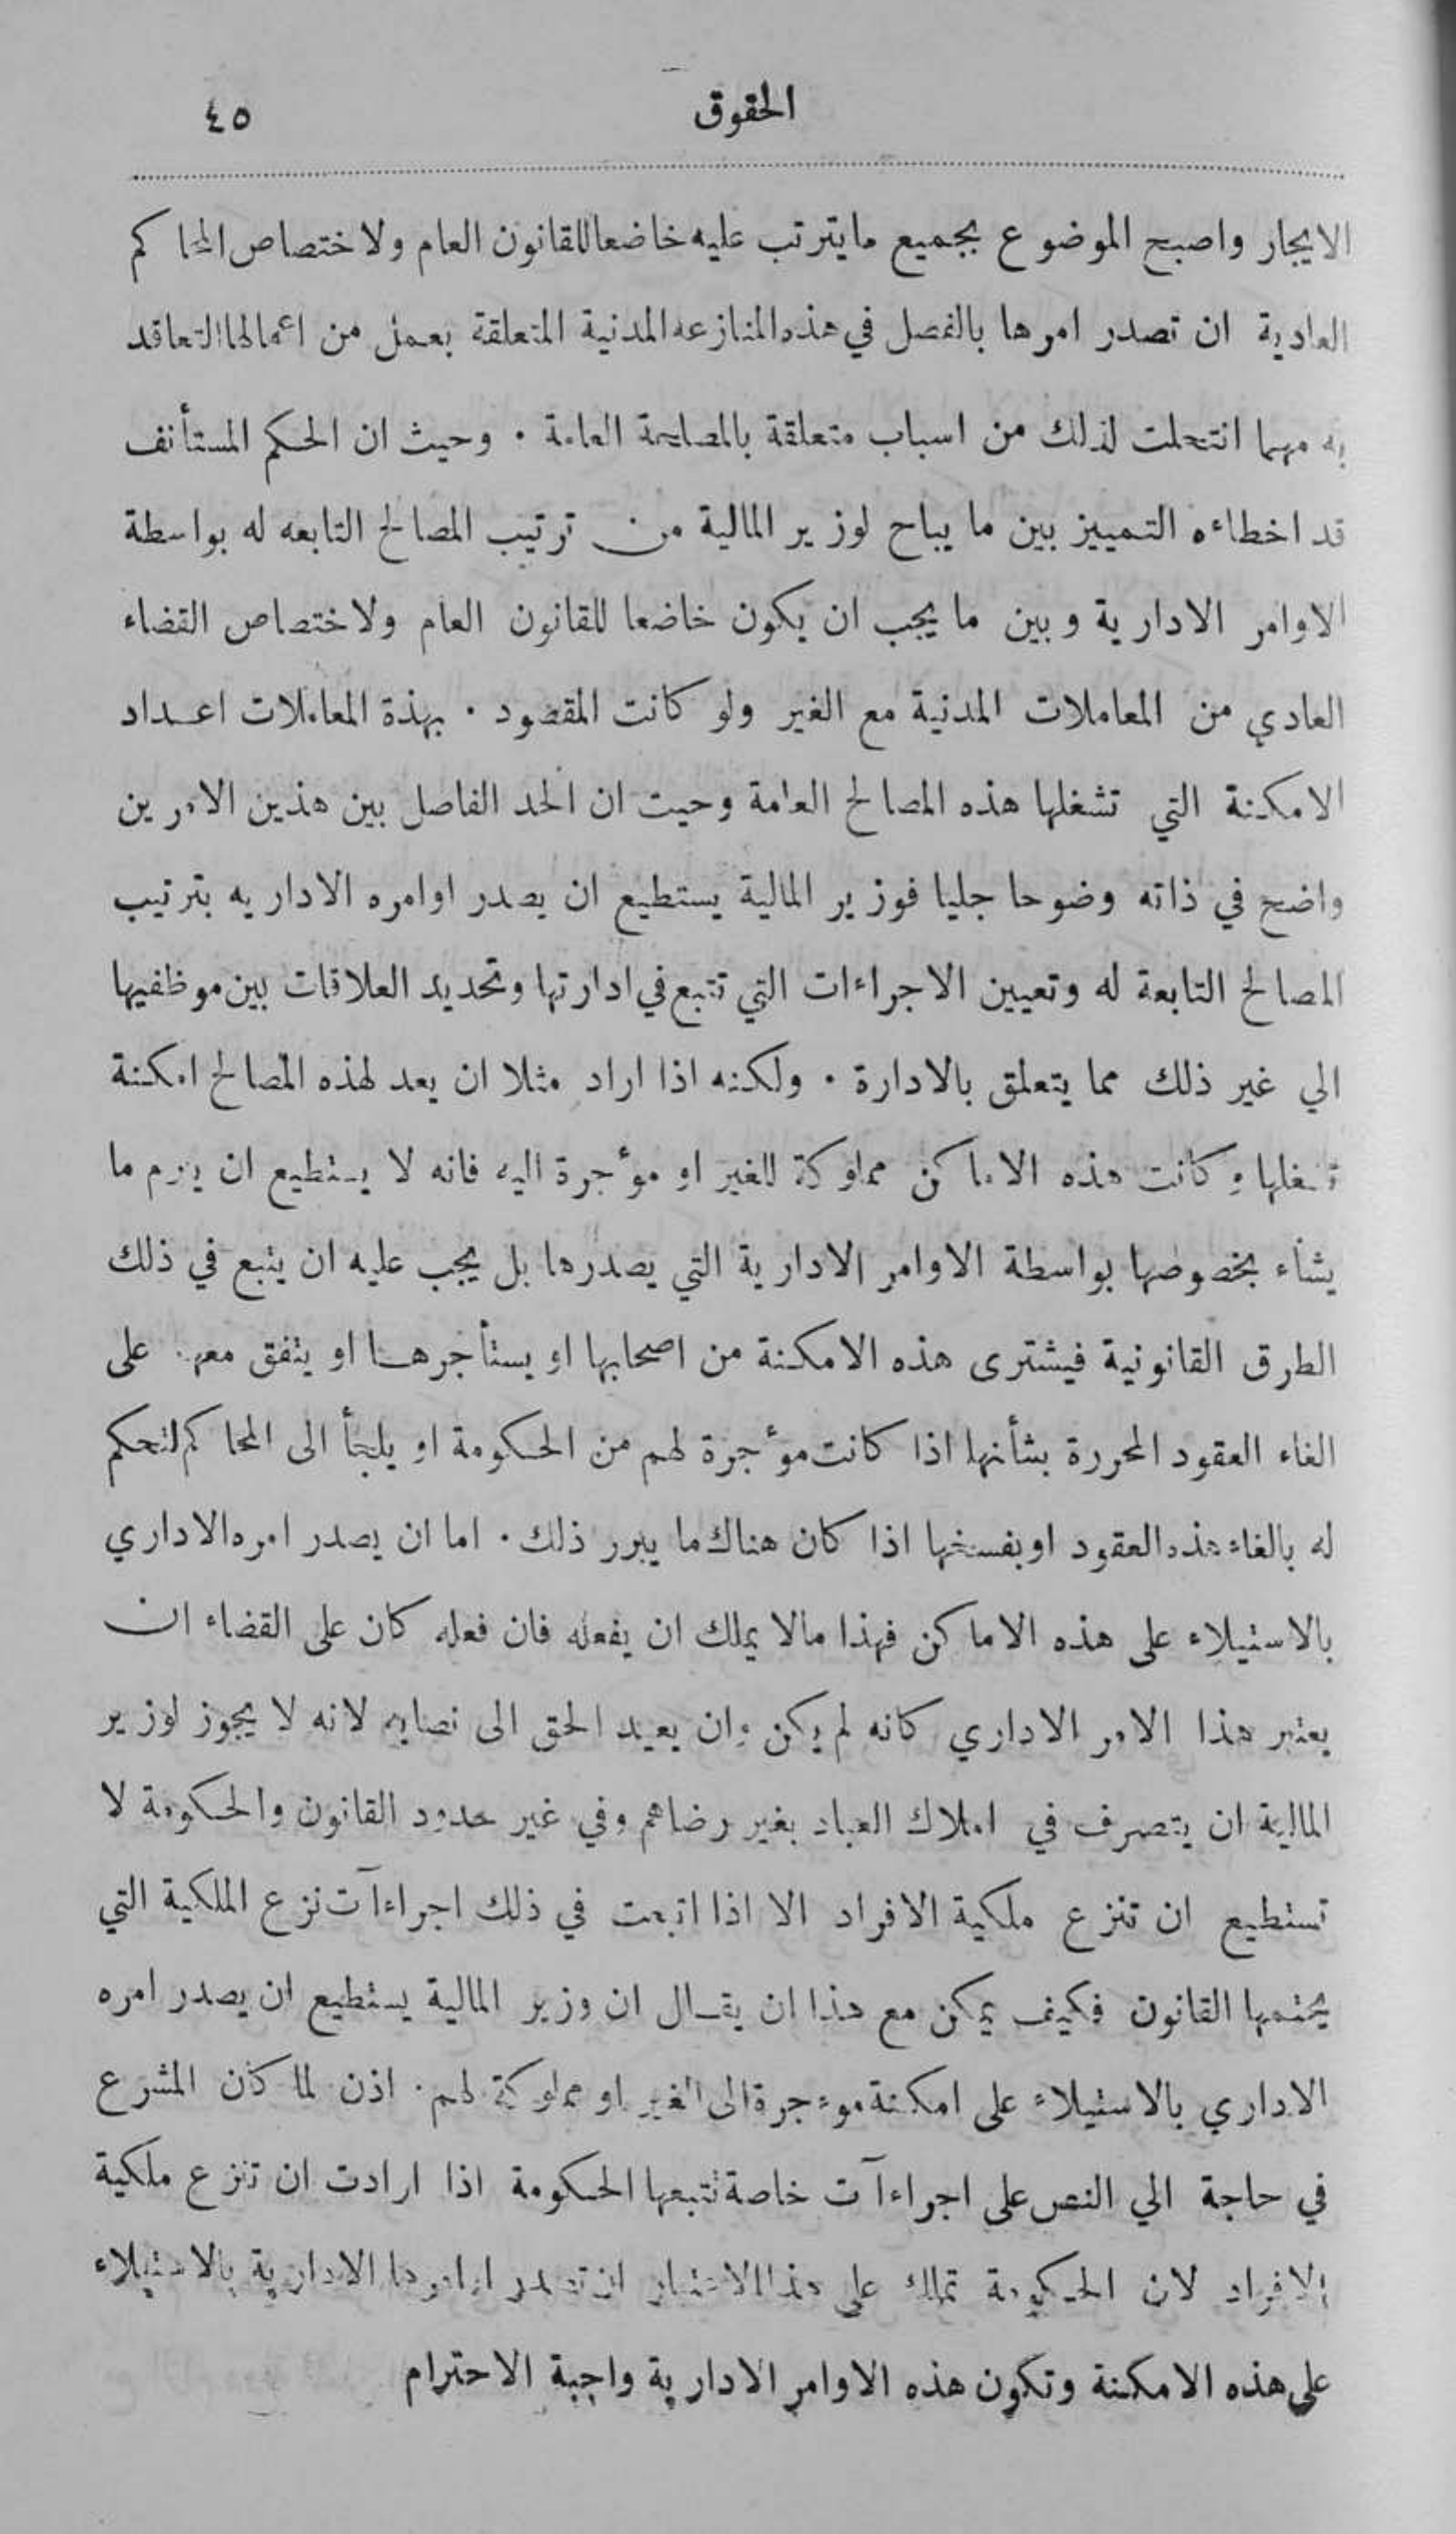 الحقوق ٤٥
الايجار واصبح الموضوع بجميع مايترتب عليه خاضعا للقانون العام ولاختصاص المحاكم
العادية ان تصدر امرها بالفصل في هذه المنازعه المدنية المتعلقة بعمل من اعمالها التعاقد
به مهما انتحلت لذلك من اسباب متعلقة بالمصلحة العامة ٠ وحيث ان الحكم المستأنف
قد اخطاءه التمييز بين ما يباح لوزير المالية من ترتيب المصالح التابعه له بواسطة
الاوامر الادارية وبين ما يجب ان يكون خاضعا للقانون العام ولاختصاص القضاء
العادي من المعاملات المدنية مع الغير ولو كانت المقصود ٠ بهذة المعاملات اعداد
الامكنة التي تشغلها هذه المصالح العامة وحيت ان الحد الفاصل بين هذين الامرين
واضح في ذاته وضوحا جليا فوزير المالية يستطيع ان يصدر اوامره الاداريه بترتيب
المصالح التابعة له وتعيين الاجراءات التي تتبع في ادارتها وتحديد العلاقات بين موظفيها
الي غير ذلك مما يتعلق بالادارة ٠ ولكنه اذا اراد مثلا ان يعد لهذه المصالح امكنة
تشغلها وكانت هذه الاماكن مملوكة للغير او مؤجرة اليه فانه لا يستطيع ان يبرم ما
يشاء بخصوصها بواسطة الاوامر الادارية التي يصدرها بل يجب عليه ان يتبع في ذلك
الطرق القانونية فيشترى هذه الامكنة من اصحابها او يستأجرها او يتفق معهم على
الغاء العقود المحررة بشأنها اذا كانت مؤجرة لهم من الحكومة او يلجأ الى المحاكم لتحكم
له بالغاء هذه العقود او بفسخها اذا كان هناك ما يبرر ذلك ٠ اما ان يصدر امره الاداري
بالاستيلاء على هذه الاماكن فهذا مالا يملك ان يفعله فان فعله كان على القضاء ان
يعتبر هذا الامر الاداري كانه لم يكن وان يعيد الحق الى نصابه لانه لا يجوز لوزير
المالية ان يتصرف في املاك العباد بغير رضاهم وفي غير حدود القانون والحكومة لا
تستطيع ان تنزع ملكية الافراد الا اذا اتبعت في ذلك اجراءآت نزع الملكية التي
يحتمها القانون فكيف يمكن مع هذا ان يقال ان وزير المالية يستطيع ان يصدر امره
الاداري بالاستيلاء على امكنة موءجرة الى الغير او مملوكة لهم ٠ اذن لما كان المشرع
في حاجة الي النص على اجراءآت خاصة تتبعها الحكومة اذا ارادت ان تنزع ملكية
الافراد لان الحكومة تملك على هذا الاعتبار ان تصدر اوامرها الادارية بالاستيلاء
على هذه الامكنة وتكون هذه الاوامر الادارية واجبة الاحترام